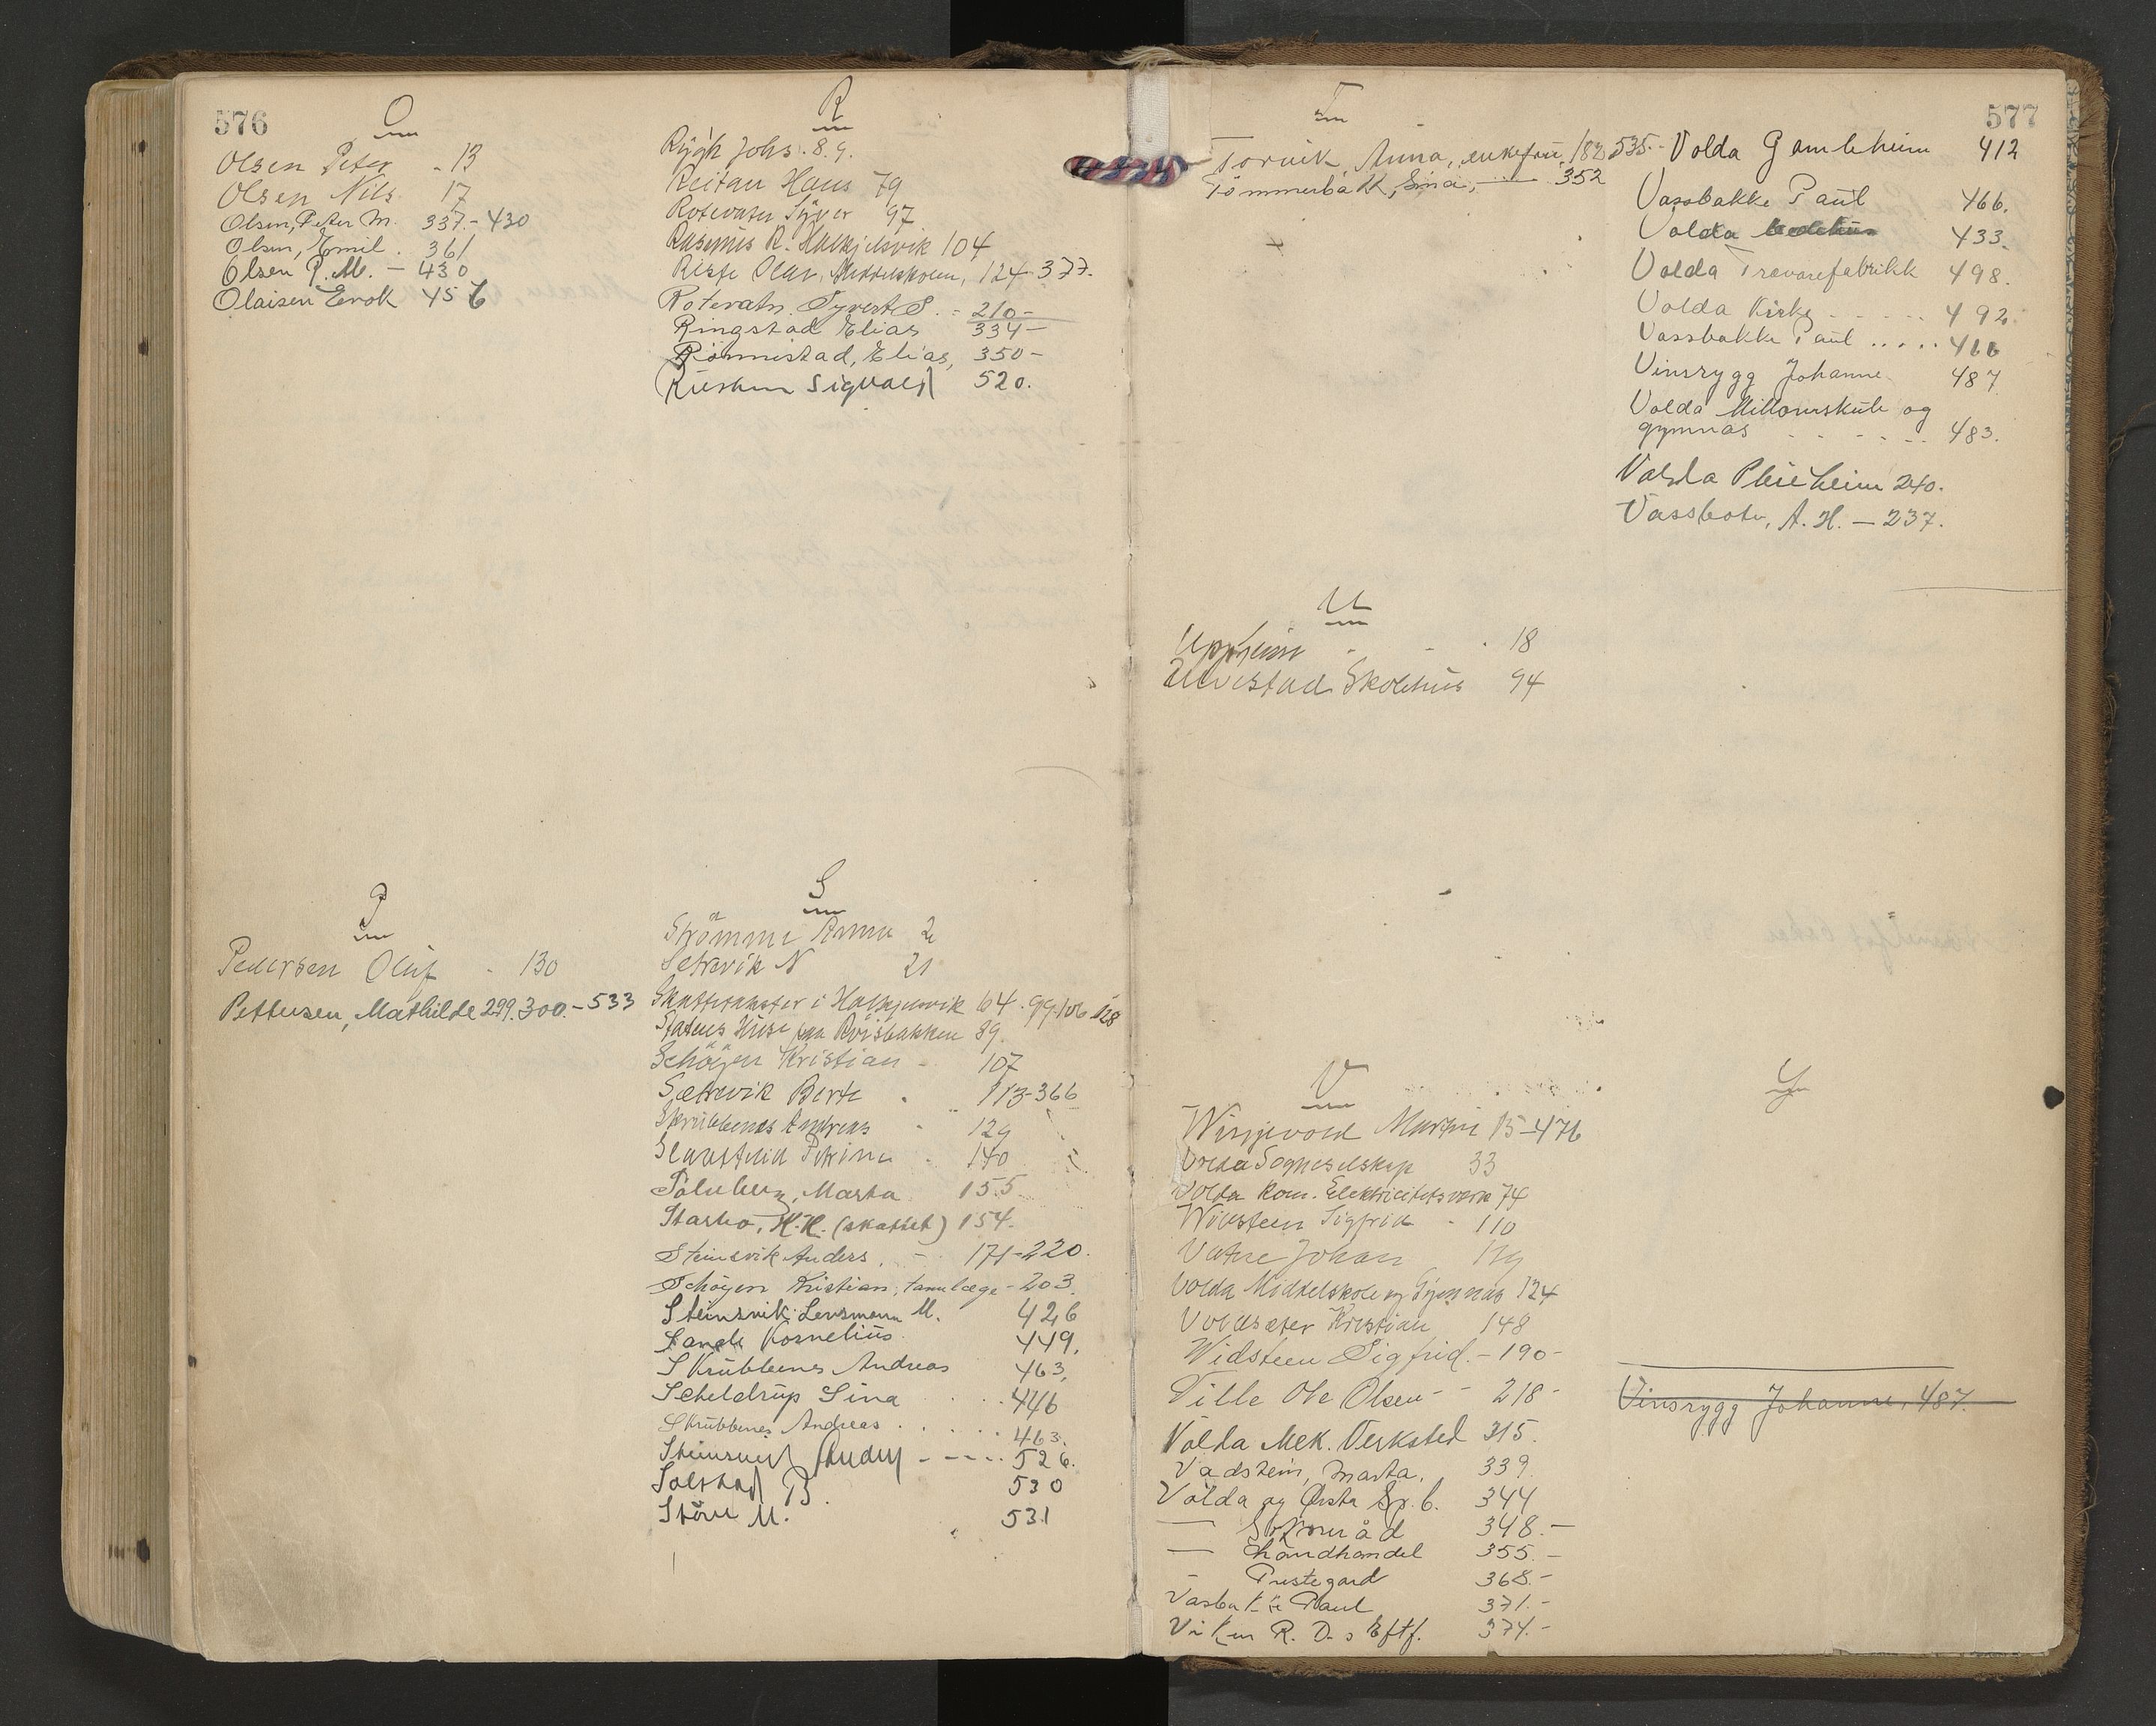 576
O
Olsen Peter - 13
Olsen Nils 17
Olsen, Peter M. 337.-430
Olsen, Emil. 361
Olsen P. M. - 430
Olaisen Evok 456
P
Pedersen Oluf - 130
Pettersen, Mathilde 299.300.-533
R
Rygh Johs. 8.9.
Reitan Hans 79
Rotevatn Syver 97
Rasmus R. Halkjelsvik 104
Riste Olav, Middelskolen, 124-377.
Rotevatn. Syvert S. - 210-
Ringstad Elias 334-
Rönnistad, Elias, 350-
Sigvald 520.
S
Strömme Anna 2
Setrevik N 21
i Halkjelsvik 64.99.106 128
Statens Huse paa Röisbakken 89.
Schöyen Kristian - 107
Sætrevik Berte . 113-366
Skrubbenes Andreas - 129
Petrine - 140
Marta 155
H.K. (skattet) 154.
Steinsvik Anders. - 171-220.
Schöyen Kristian, tannlæge - 203.
Steinsvik Lensmann M. 426
Sande Kornelius. 449.
Skrubbenes Andreas 463,
Scheldrup Sina ... 446
Skrubbenes Andreas ..... 463.
---- 526.
Solstad B. 530
Störe M. 531
577
T
Torvik, Anna, enkefru, 182 535.-
Tömmerbakk, Sina, 352
U
Uppheim - - . 18
Ulvestad Skolehus 94
V
Martin 15-476
Volda Sogneselskap 33
Volda Kom. Elektricitetsverk 74
Widsteen Sigfrid - 110
Vatne Johan 119
Volda Middelskole og Gymnas 124
Voldsæter Kristian 148
Widsteen Sigfrid. - 190-
Ville Ole Olsen - - 218-
Volda Mek. Verksted 315.
Vadstein, Marta. 339.
Volda og Ørsta Sp. b. 344
— 348.-
— håndhandel 355.-
- Prestegard 368.-
Vasbakke Paul 371.-
Viken R. D. s Eftf. 374.-
Volda Gamleheim 412
Vassbakke Paul 466.
Volda 433.
Volda Trævarefabrikk 498.
Volda Kirke ..... 492.
Vassbakke Paul ..... 466
Vinsrygg Johanne 487
Volda Millomskule og
gymnas ..... 483.
Volda Pleieheim 240.
Vassbotn, A. H. - 237.
Y
Vinsrygg Johanne, 487.